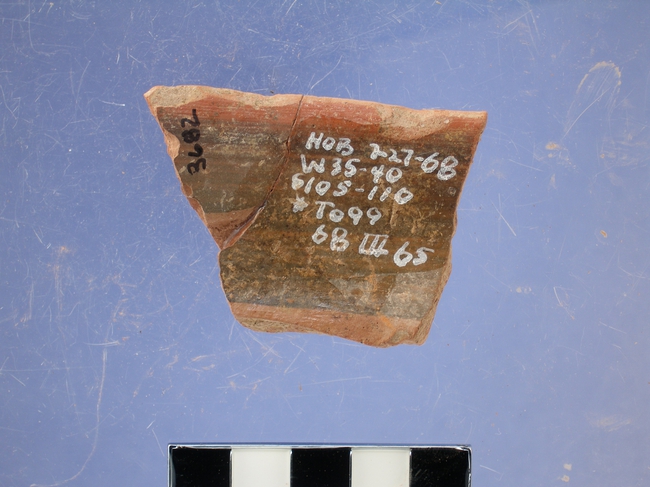 3682
HOB 227-68
W35-40
S105-110
*To99
68 III 65